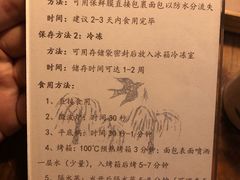 方法：可用保鲜膜直接包裹面包以防水分流失
时间：建议 2-3 天内食用完毕
保存方法 2：冷冻
方法：可用存储袋密封后放入冰箱冷冻室
时间：储存时间可达 1-2 周
食用方法：
1、直接食用
2、微波炉：时间 30 秒
3、平底锅：时间 1 分钟
4、烤箱：100℃预热烤箱 3 分钟；面包表面喷洒
一层水（少量），入烤箱后烤 5-7 分钟